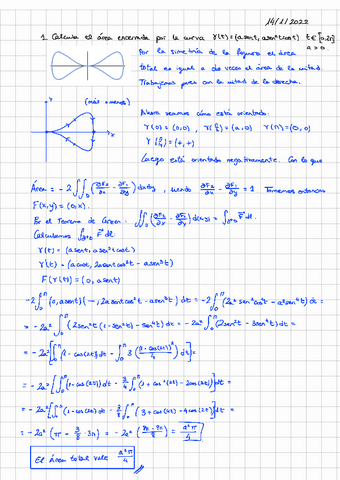 14/11/2022
1. Calcula el área encerrada por la curva γ(t) = (a sent, a sen²t cost) t ∈ [0,2π] a > 0.
Por la simetría de la figura el área
total es igual a dos veces el área de la mitad.
Trabajamos pues con la mitad de la derecha.
(más o menos)
Y
X
Ahora veamos cómo está orientada:
γ(0) = (0,0), γ(π/2) = (a,0) γ(π) = (0,0)
γ(π/4) = (+,+)
Luego está orientada negativamente. Con lo que
Área = -2 ∬_D (∂F₂/∂x - ∂F₁/∂y) dxdy, siendo ∂F₂/∂x - ∂F₁/∂y = 1 Tomemos entonces
F(x,y) = (0,x).
Por el Teorema de Green: ∬_D (∂F₂/∂x - ∂F₁/∂y) dxdy = ∫_∂⁺D F dl.
Calculamos ∫_∂⁺D F dl:
γ(t) = (a sent, a sen²t cost)
γ'(t) = (a cost, 2a sent cos²t - a sen³t)
F(γ(t)) = (0, a sent)
-2∫₀^π (0, a sent)(–, 2a sent cos²t - a sen³t) dt = -2∫₀^π (2a² sen²t cos²t - a² sen⁴t) dt =
= -2a² ∫₀^π (2sen²t (1-sen²t) - sen⁴t) dt = -2a² ∫₀^π (2sen²t - 3sen⁴t) dt =
= -2a² [∫₀^π (1-cos(2t)) dt - ∫₀^π 3 ((1-cos(2t))²/4) dt] =
= -2a² [∫₀^π (1-cos(2t)) dt - 3/4 ∫₀^π (1 + cos²(2t) - 2cos(2t))] dt =
= -2a² [∫₀^π (1-cos(2t)) dt - 3/8 ∫₀^π (3 + cos(4t) - 4cos(2t)] dt =
= -2a² (π - 3/8 · 3π) = -2a² (8π - 9π / 8) = a²π/4
El área total vale a²π/4